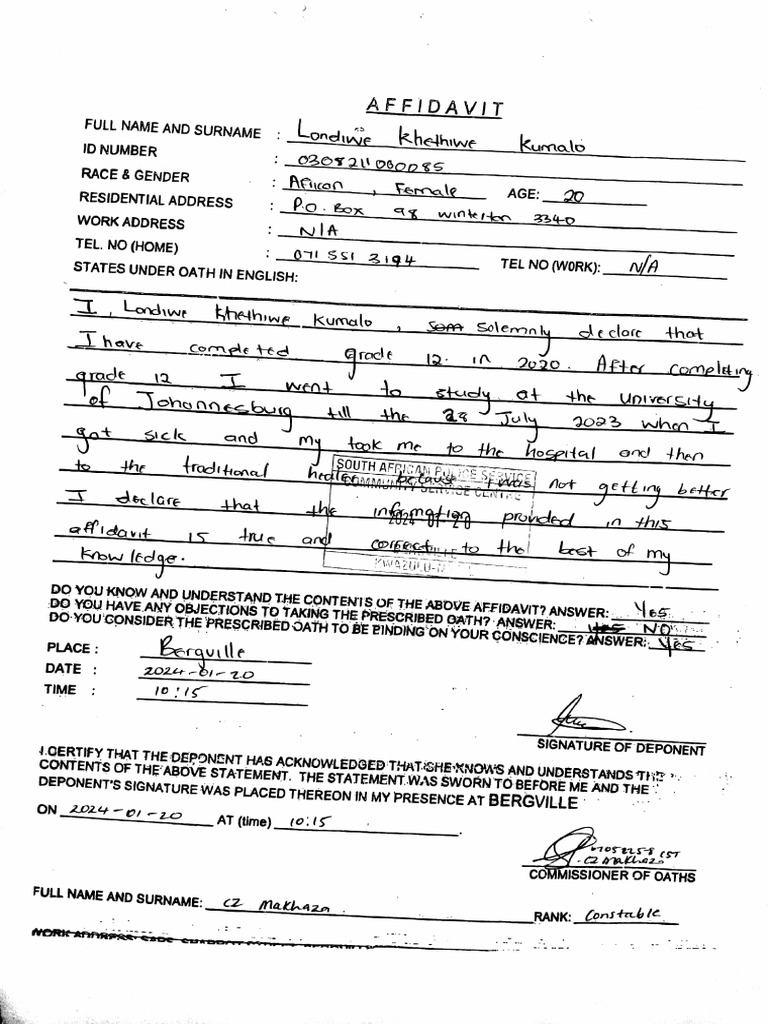 AFFIDAVIT
FULL NAME AND SURNAME : Londiwe Khethiwe Kumalo
ID NUMBER : 0308211000085
RACE & GENDER : African , Female AGE: 20
RESIDENTIAL ADDRESS : P.O. Box 98 winterton 3340
WORK ADDRESS : N/A
TEL. NO (HOME) : 071 551 3194 TEL NO (WORK): N/A
STATES UNDER OATH IN ENGLISH:
I, Londiwe Khethiwe Kumalo, solemnly declare that
I have completed grade 12. in 2020. After completing
grade 12 I went to study at the university
of Johannesburg till the 28 July 2023 when I
got sick and my took me to the hospital and then
to the traditional healer because I was not getting better
I declare that the information provided in this
affidavit is true and correct to the best of my
knowledge.
SOUTH AFRICAN POLICE SERVICE
COMMUNITY SERVICE CENTRE
2024 -01- 20
KWAZULU-N
DO YOU KNOW AND UNDERSTAND THE CONTENTS OF THE ABOVE AFFIDAVIT? ANSWER: Yes
DO YOU HAVE ANY OBJECTIONS TO TAKING THE PRESCRIBED OATH? ANSWER: yes NO
DO YOU CONSIDER THE PRESCRIBED OATH TO BE BINDING ON YOUR CONSCIENCE? ANSWER: Yes
PLACE : Bergville
DATE : 2024-01-20
TIME : 10:15
SIGNATURE OF DEPONENT
I CERTIFY THAT THE DEPONENT HAS ACKNOWLEDGED THAT SHE KNOWS AND UNDERSTANDS THE
CONTENTS OF THE ABOVE STATEMENT. THE STATEMENT WAS SWORN TO BEFORE ME AND THE
DEPONENT'S SIGNATURE WAS PLACED THEREON IN MY PRESENCE AT BERGVILLE
ON 2024-01-20 AT (time) 10:15
CST
CZ Makhaza
COMMISSIONER OF OATHS
FULL NAME AND SURNAME: CZ Makhaza RANK: Constable
WORK ADDRESS: SAPS